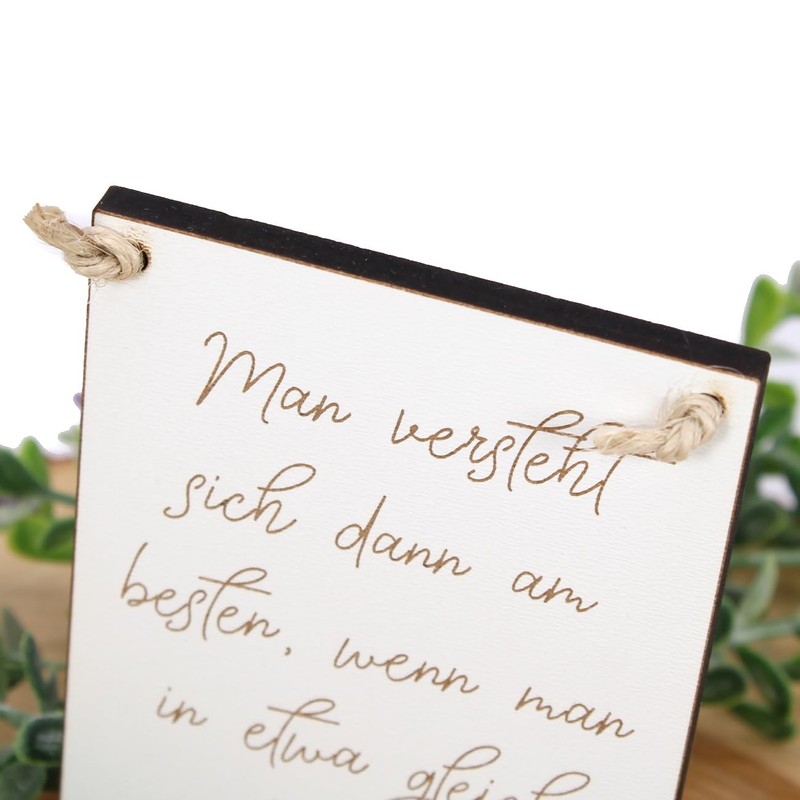 Man versteht
sich dann am
besten, wenn man
in etwa gleich